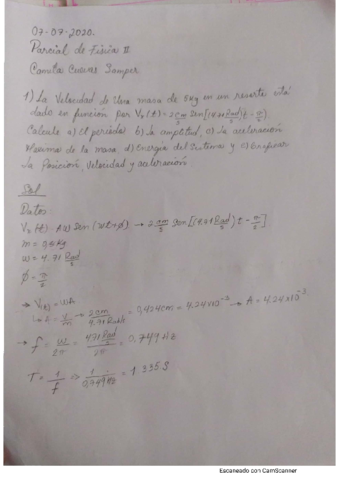 07-07-2020.
Parcial de Fisica II
Camilas Cuevas Jamper
1) La Velocidad de Una masa de 5Kg en un resorte está
dado en función por Vx(t) = 2 cm/s Sen[(4.71 Rad/s)t - π/2].
Calcule a) (el periodo) b) la amplitud, c) la aceleración
Maxima de la masa d) Energia del Sistema y e) Graficar
La Posición Velocidad y aceleración
Sol
Datos:
Vx(t) - Aω Sen(ωt+ϕ) → 2 cm/s Sen[(4.71 Rad/s)t - π/2]
m = 0,5 Kg
ω = 4.71 Rad/s
ϕ = π/2
→ V = ωA
→ 2 cm/s / 4.71 Rad/s = 0,424cm = 4.24x10⁻³ → A = 4.24x10⁻³
→ f = ω/2π = 4.71 Rad/s / 2π = 0,749 Hz
T = 1/f → 1/0,749Hz = 1.335 S
Escaneado con CamScanner